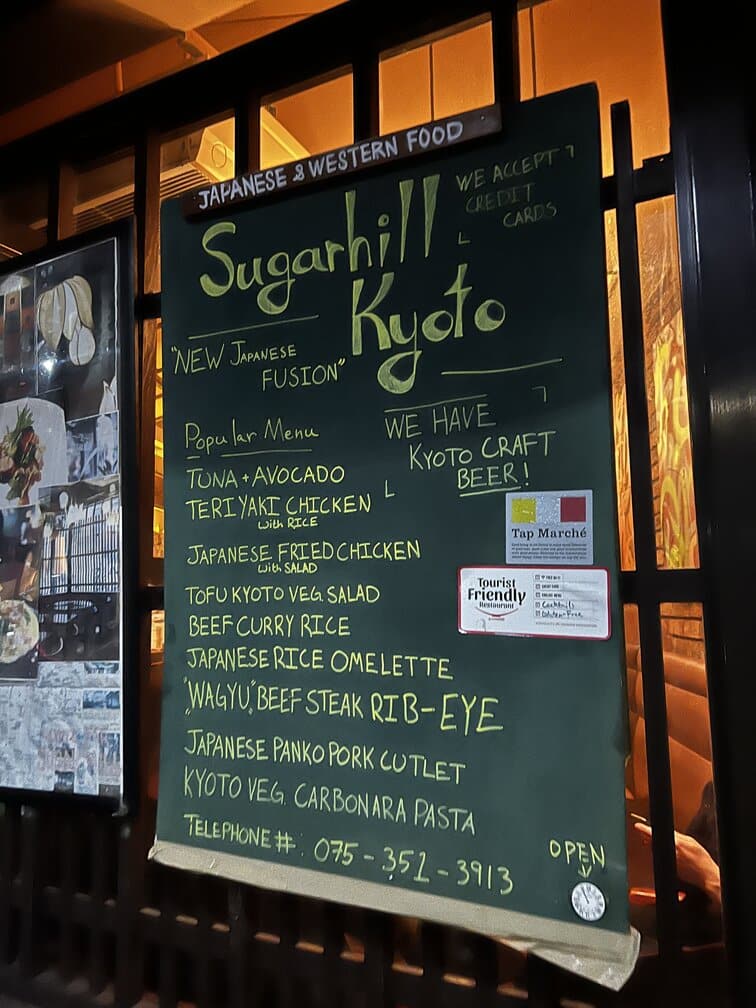 JAPANESE & WESTERN FOOD
WE ACCEPT
CREDIT
CARDS
Sugarhill
Kyoto
"NEW JAPANESE
FUSION"
WE HAVE
KYOTO CRAFT
BEER!
Popular Menu
TUNA + AVOCADO
TERIYAKI CHICKEN
with RICE
JAPANESE FRIED CHICKEN
with SALAD
TOFU KYOTO VEG. SALAD
BEEF CURRY RICE
JAPANESE RICE OMELETTE
"WAGYU" BEEF STEAK RIB-EYE
JAPANESE PANKO PORK CUTLET
KYOTO VEG. CARBONARA PASTA
TELEPHONE #: 075-351-3913
OPEN
Tap Marché
Tourist
Friendly
Restaurant
Cocktails
Gluten-Free